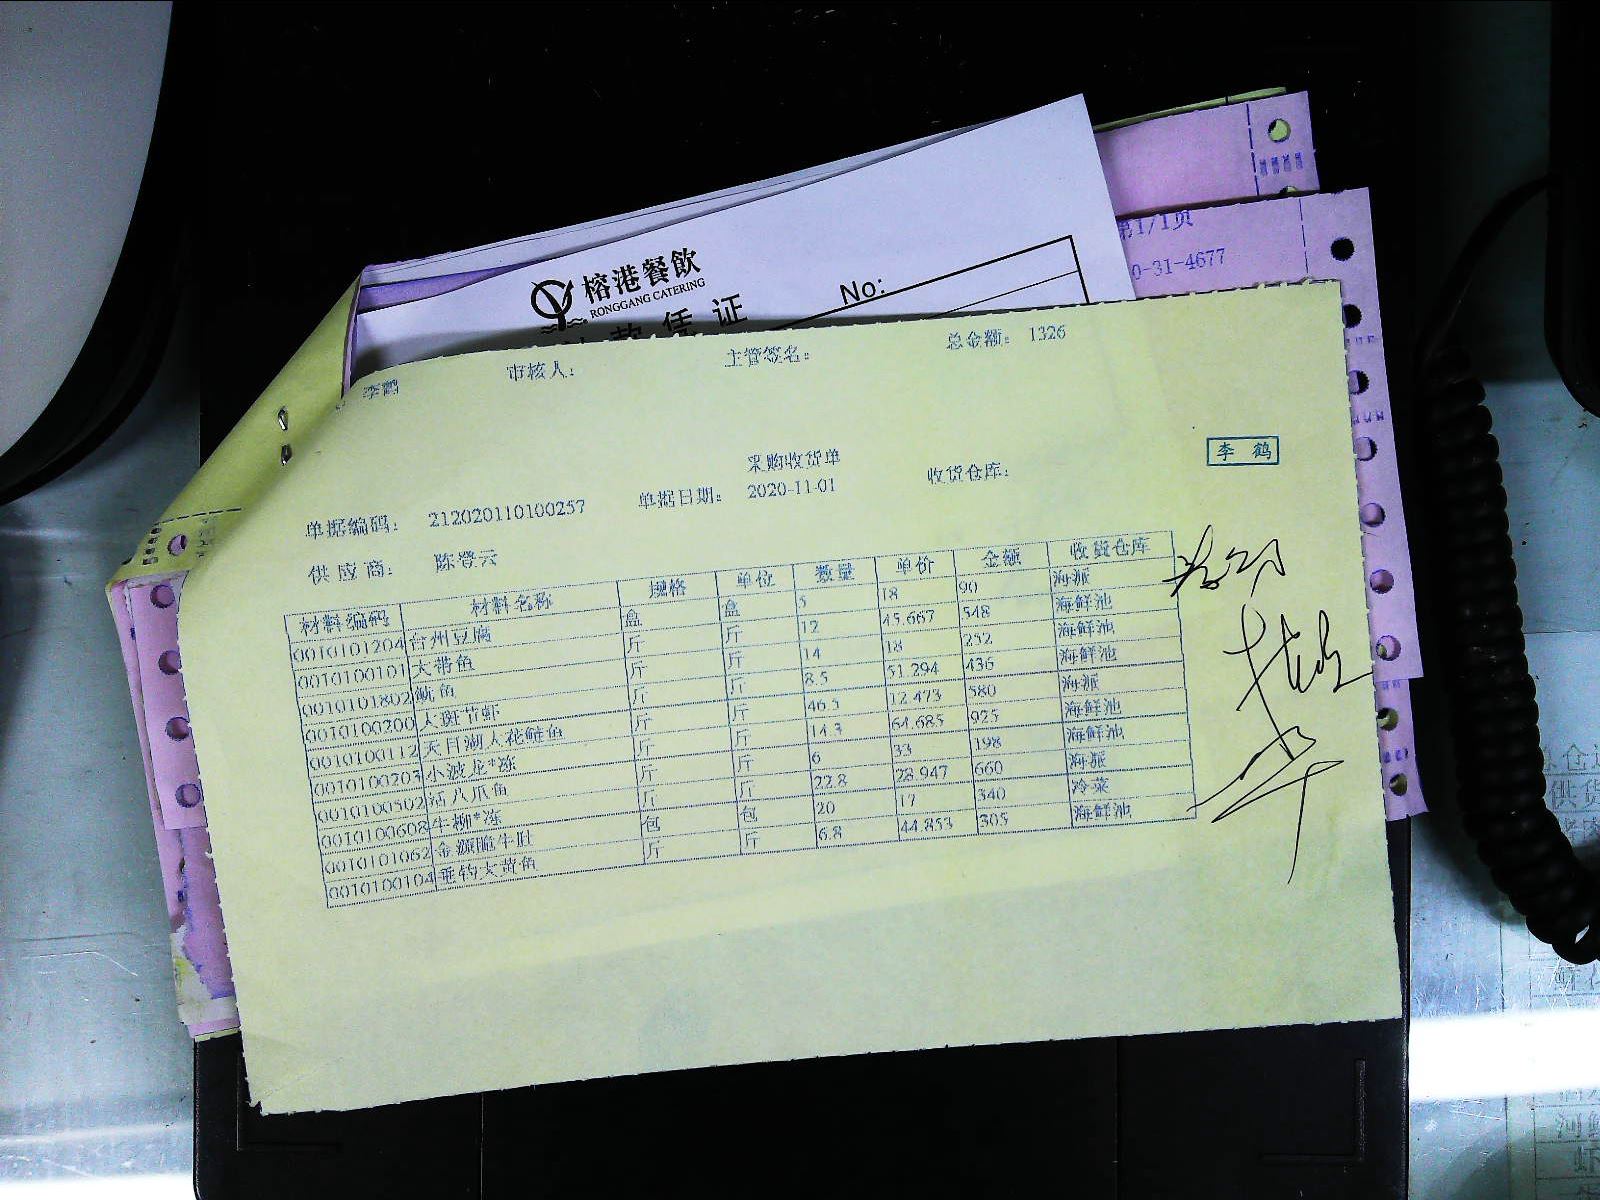 第1/1页
0-31-4677
榕港餐飲
RONGGANG CATERING
款凭证
No:
李鹤 审核人： 主管签名： 总金额： 1326
李鹤
采购收货单
单据编码： 212020110100257 单据日期： 2020-11-01 收货仓库：
供应商： 陈登云
材料编码 材料名称 规格 单位 数量 单价 金额 收货仓库
0010101204 台州豆腐 盒 盒 5 18 90 海派
0010100101 大带鱼 斤 斤 12 45.667 548 海鲜池
0010101802 鱼 斤 斤 14 18 252 海鲜池
0010100200 大斑节虾 斤 斤 8.5 51.294 436 海鲜池
0010100112 天目湖大花鲢鱼 斤 斤 46.5 12.473 580 海派
0010100203 小波龙*冻 斤 斤 14.3 64.685 925 海鲜池
0010100502 活八爪鱼 斤 斤 6 33 198 海鲜池
0010100608 牛柳*冻 斤 斤 22.8 28.947 660 海派
0010101062 金源脆牛肚 包 包 20 17 340 冷菜
0010100104 垂钓大黄鱼 斤 斤 6.8 44.853 305 海鲜池
供货
河
虾